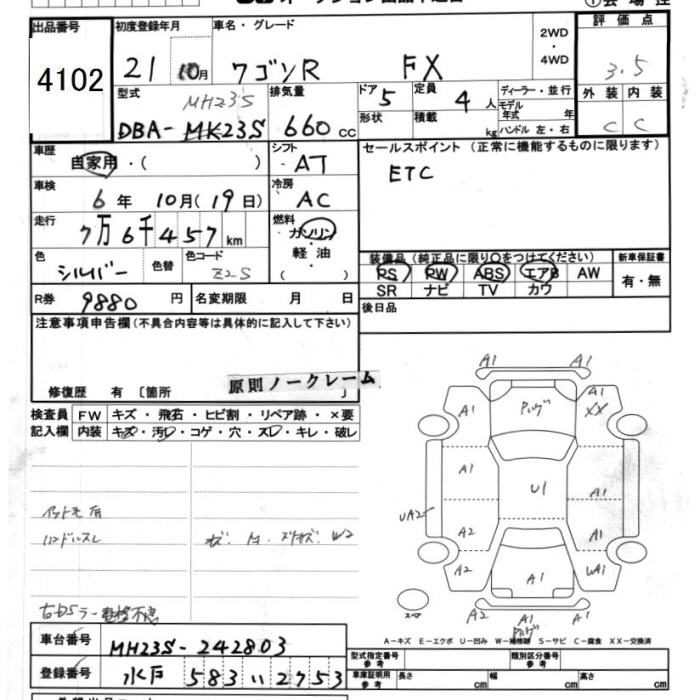 出品番号
4102
初度登録年月
21 10月
車名・グレード
ワゴンR FX
2WD
・
4WD
評価点
3.5
外装 内装
C C
型式
MH23S
DBA-MK23S
排気量
660 cc
ドア
5
形状
定員
4 人
積載
kg
ディーラー・並行
モデル年式 年
ハンドル 左・右
車歴
自家用・( )
シフト
AT
セールスポイント (正常に機能するものに限ります)
ETC
車検
6年 10月(19日)
冷房
AC
走行
7万6千457km
燃料
ガソリン
・
軽油
・
( )
色
シルバー
色替
色コード
Z2S
装備品 (純正品に限り○をつけてください)
PS PW ABS エアB AW
SR ナビ TV カワ
新車保証書
有・無
R券
9880 円
名変期限 月 日
後日品
注意事項申告欄(不具合内容等は具体的に記入して下さい)
修復歴 有 〔箇所 〕
原則ノークレーム
検査員
記入欄
FW キズ・飛石・ヒビ割・リペア跡・×要
内装 キズ・汚レ・コゲ・穴・スレ・キレ・破レ
ハンドルスレ
A1 A1
A1 A1
XX
A1 U1 A1
UA2
A2 A1
A2 A1 UA1
A2 A1 A1
A-キズ E-エクボ U-凹み W-補修跡 S-サビ C-腐食 XX-交換済
車台番号
MH23S-242803
登録番号
水戸 583 い 2753
型式指定番号
参考
類別区分番号
参考
車庫証明用
参考
長さ cm
幅 cm
高さ cm